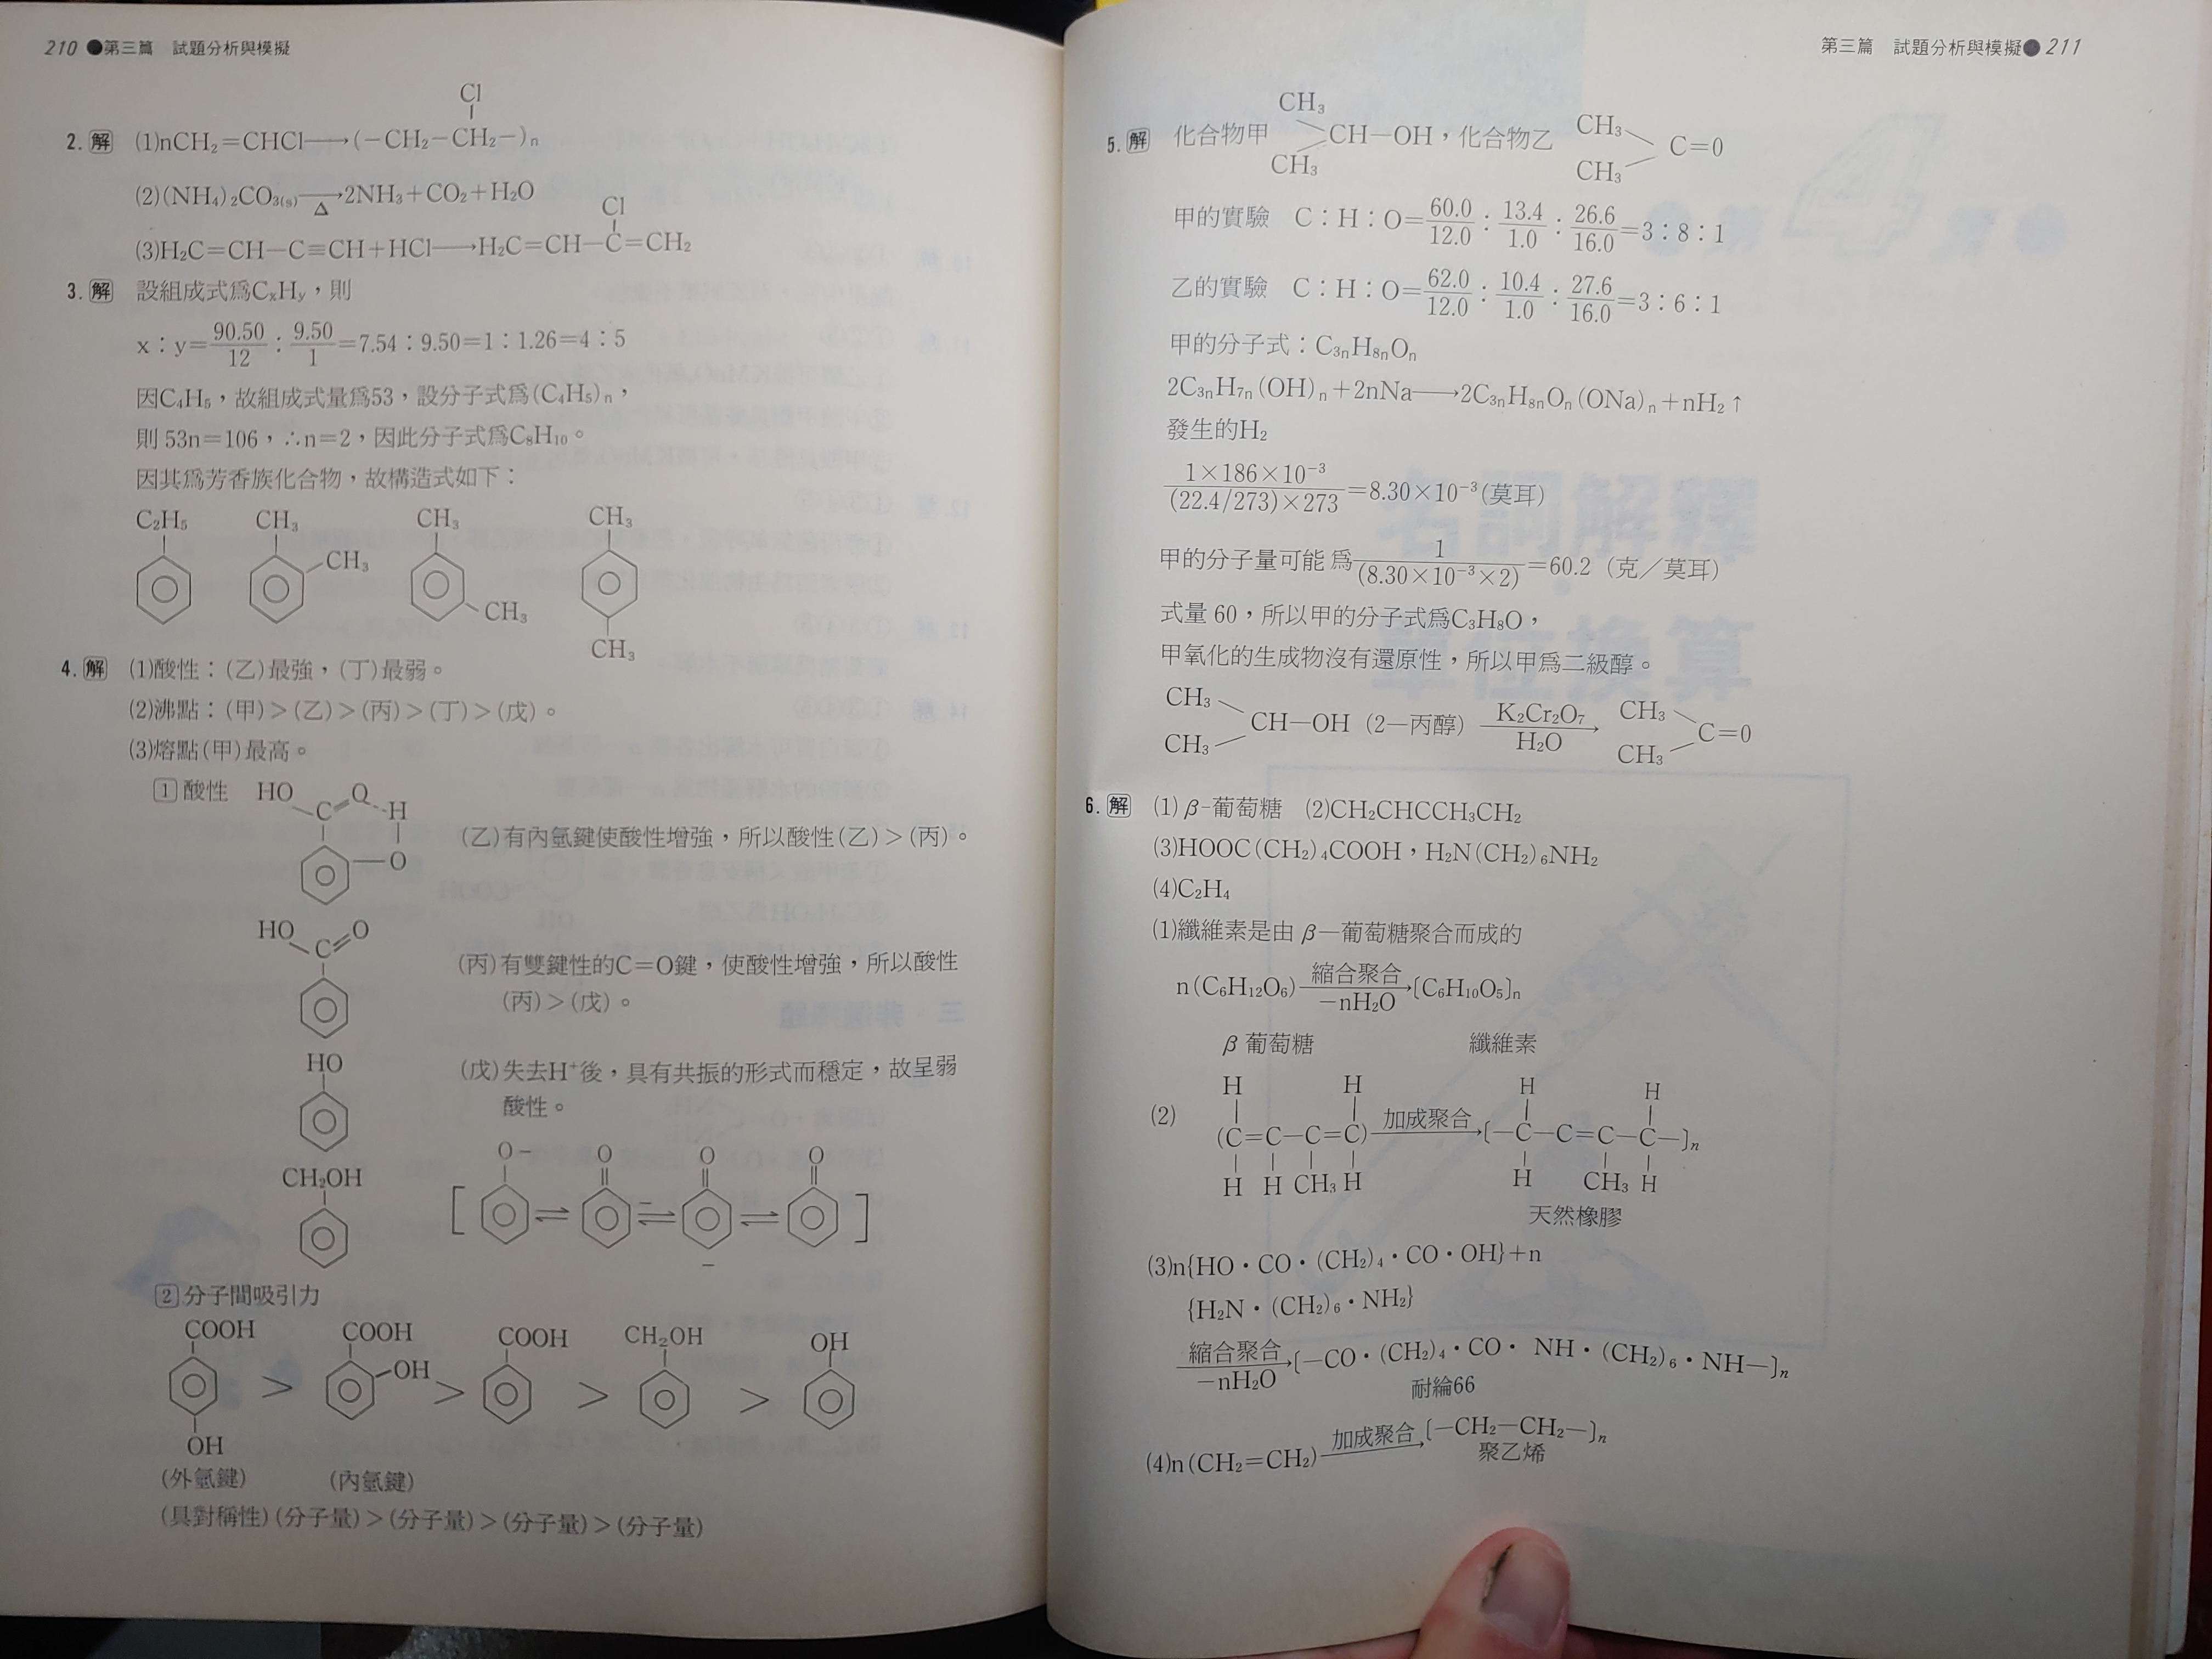 210 ●第三篇 試題分析與模擬
Cl
2. 解 (1)nCH₂=CHCl⟶(−CH₂−CH₂−)ₙ
(2)(NH₄)₂CO₃(s) ⟶Δ 2NH₃+CO₂+H₂O
Cl
(3)H₂C=CH−C≡CH+HCl⟶H₂C=CH−C=CH₂
3. 解 設組成式爲CₓHᵧ，則
x：y=90.50/12：9.50/1=7.54：9.50=1：1.26=4：5
因C₄H₅，故組成式量爲53，設分子式爲(C₄H₅)ₙ，
則 53n=106，∴n=2，因此分子式爲C₈H₁₀。
因其爲芳香族化合物，故構造式如下：
C₂H₅ CH₃ CH₃ CH₃
CH₃
CH₃
CH₃
4. 解 (1)酸性：(乙)最強，(丁)最弱。
(2)沸點：(甲)>(乙)>(丙)>(丁)>(戊)。
(3)熔點(甲)最高。
1 酸性 HO C O H
(乙)有內氫鍵使酸性增強，所以酸性(乙)>(丙)。
O
HO C O
(丙)有雙鍵性的C=O鍵，使酸性增強，所以酸性
(丙)>(戊)。
HO
(戊)失去H⁺後，具有共振的形式而穩定，故呈弱
酸性。
O− O O O
CH₂OH
[ ⇌ − ⇌ ⇌ ]
−
2 分子間吸引力
COOH COOH COOH CH₂OH OH
OH
> > > >
OH
(外氫鍵) (內氫鍵)
(具對稱性)(分子量)>(分子量)>(分子量)>(分子量)
第三篇 試題分析與模擬● 211
CH₃
5. 解 化合物甲 CH−OH，化合物乙 CH₃ C=0
CH₃ CH₃
甲的實驗 C：H：O=60.0/12.0：13.4/1.0：26.6/16.0=3：8：1
乙的實驗 C：H：O=62.0/12.0：10.4/1.0：27.6/16.0=3：6：1
甲的分子式：C₃ₙH₈ₙOₙ
2C₃ₙH₇ₙ(OH)ₙ+2nNa⟶2C₃ₙH₈ₙOₙ(ONa)ₙ+nH₂↑
發生的H₂
1×186×10⁻³/(22.4/273)×273=8.30×10⁻³(莫耳)
甲的分子量可能爲1/(8.30×10⁻³×2)=60.2（克／莫耳）
式量 60，所以甲的分子式爲C₃H₈O，
甲氧化的生成物沒有還原性，所以甲爲二級醇。
CH₃ CH₃
CH−OH（2—丙醇） K₂Cr₂O₇/H₂O⟶ C=0
CH₃ CH₃
6. 解 (1) β-葡萄糖 (2)CH₂CHCCH₃CH₂
(3)HOOC(CH₂)₄COOH，H₂N(CH₂)₆NH₂
(4)C₂H₄
(1)纖維素是由 β—葡萄糖聚合而成的
n(C₆H₁₂O₆) 縮合聚合/−nH₂O⟶[C₆H₁₀O₅]ₙ
β 葡萄糖 纖維素
H H H H
(2) (C=C−C=C) 加成聚合⟶[−C−C=C−C−]ₙ
H H CH₃ H H CH₃ H
天然橡膠
(3)n{HO・CO・(CH₂)₄・CO・OH}+n
{H₂N・(CH₂)₆・NH₂}
縮合聚合/−nH₂O⟶[−CO・(CH₂)₄・CO・ NH・(CH₂)₆・NH−]ₙ
耐綸66
(4)n(CH₂=CH₂) 加成聚合⟶[−CH₂−CH₂−]ₙ
聚乙烯